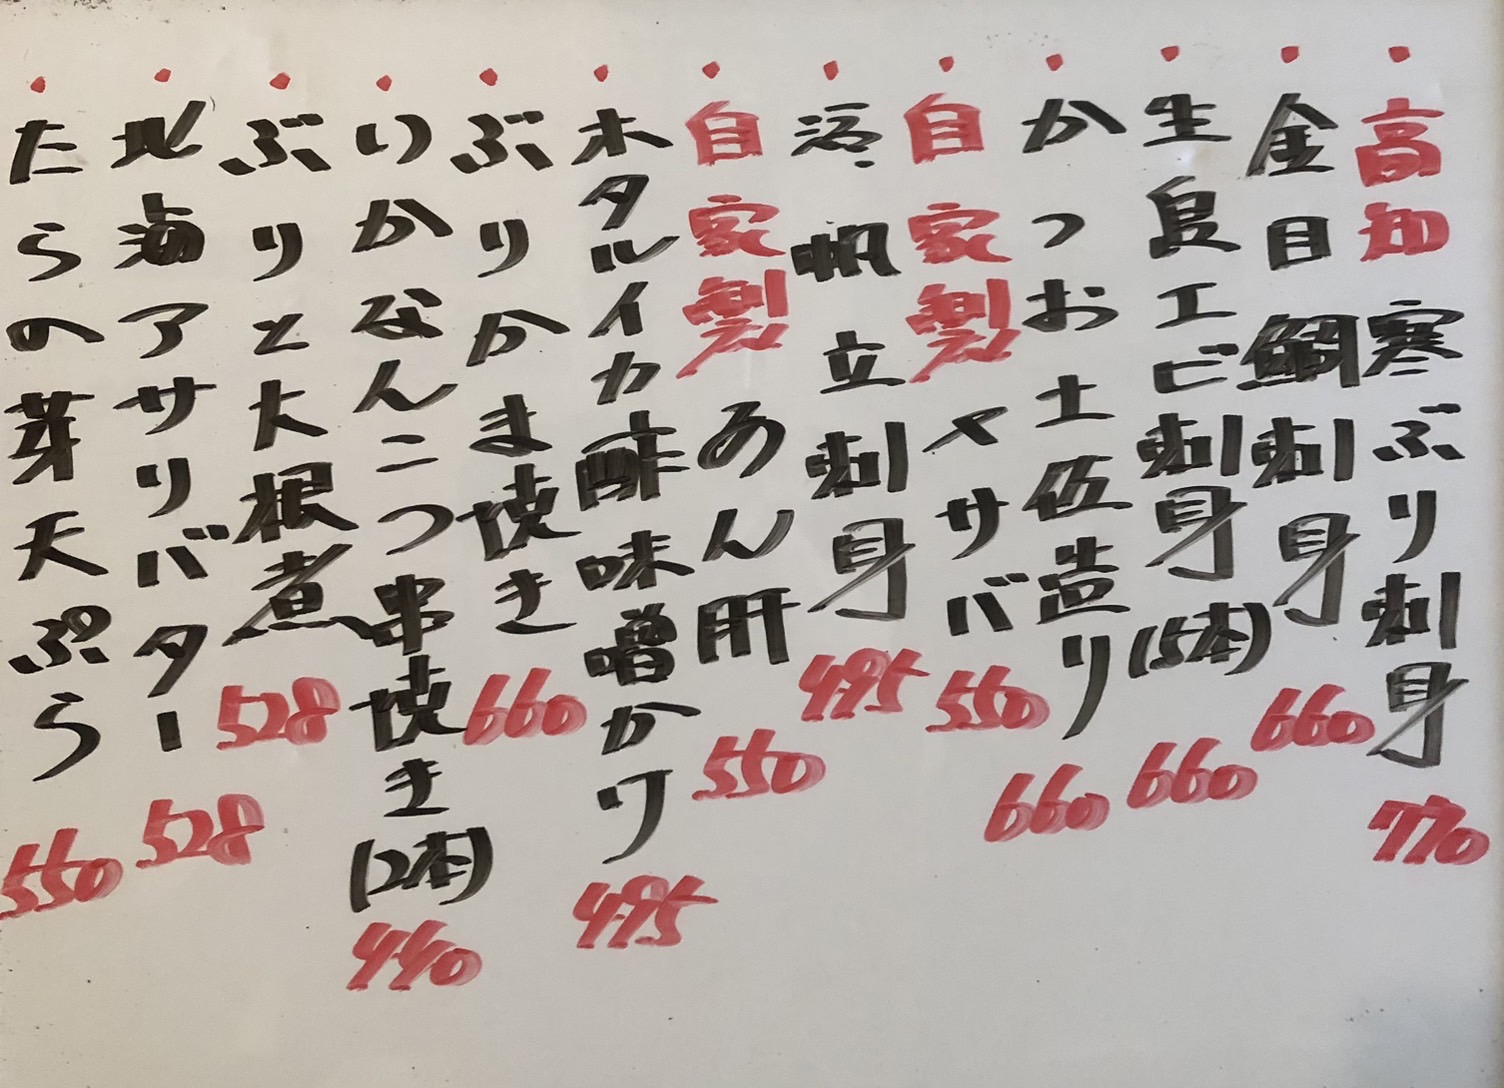 ・高知 寒ぶり刺身 770
・金目鯛刺身 660
・生良エビ刺身(5本) 660
・かつお土佐造り 660
・自家製 〆サバ 550
・活帆立刺身 495
・自家製 あん肝 550
・ホタルイカ酢味噌かけ 495
・ぶりかま焼き 660
・いかなんこつ串焼き(2本) 440
・ぶりと大根煮 528
・地海アサリバター 528
・たらの芽天ぷら 550